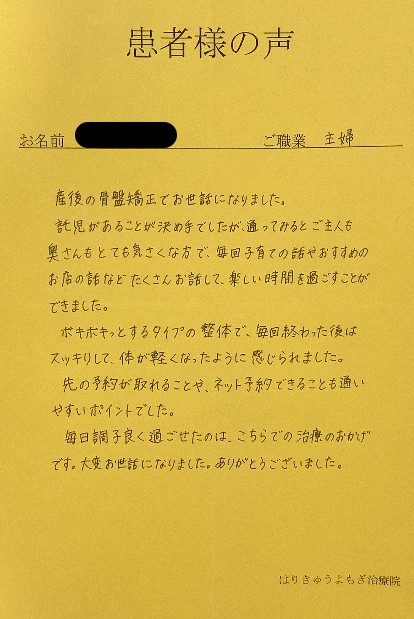 患者様の声
お名前 ご職業 主婦
産後の骨盤矯正でお世話になりました。
託児があることが決め手でしたが、通ってみるとご主人も
奥さんもとても気さくな方で、毎回子育ての話やおすすめの
お店の話などたくさんお話して、楽しい時間を過ごすことが
できました。
ボキボキっとするタイプの整体で、毎回終わった後は
スッキリして、体が軽くなったように感じられました。
先の予約が取れることや、ネット予約できることも通い
やすいポイントでした。
毎日調子良く過ごせたのは、こちらでの治療のおかげ
です。大変お世話になりました。ありがとうございました。
はりきゅうよもぎ治療院